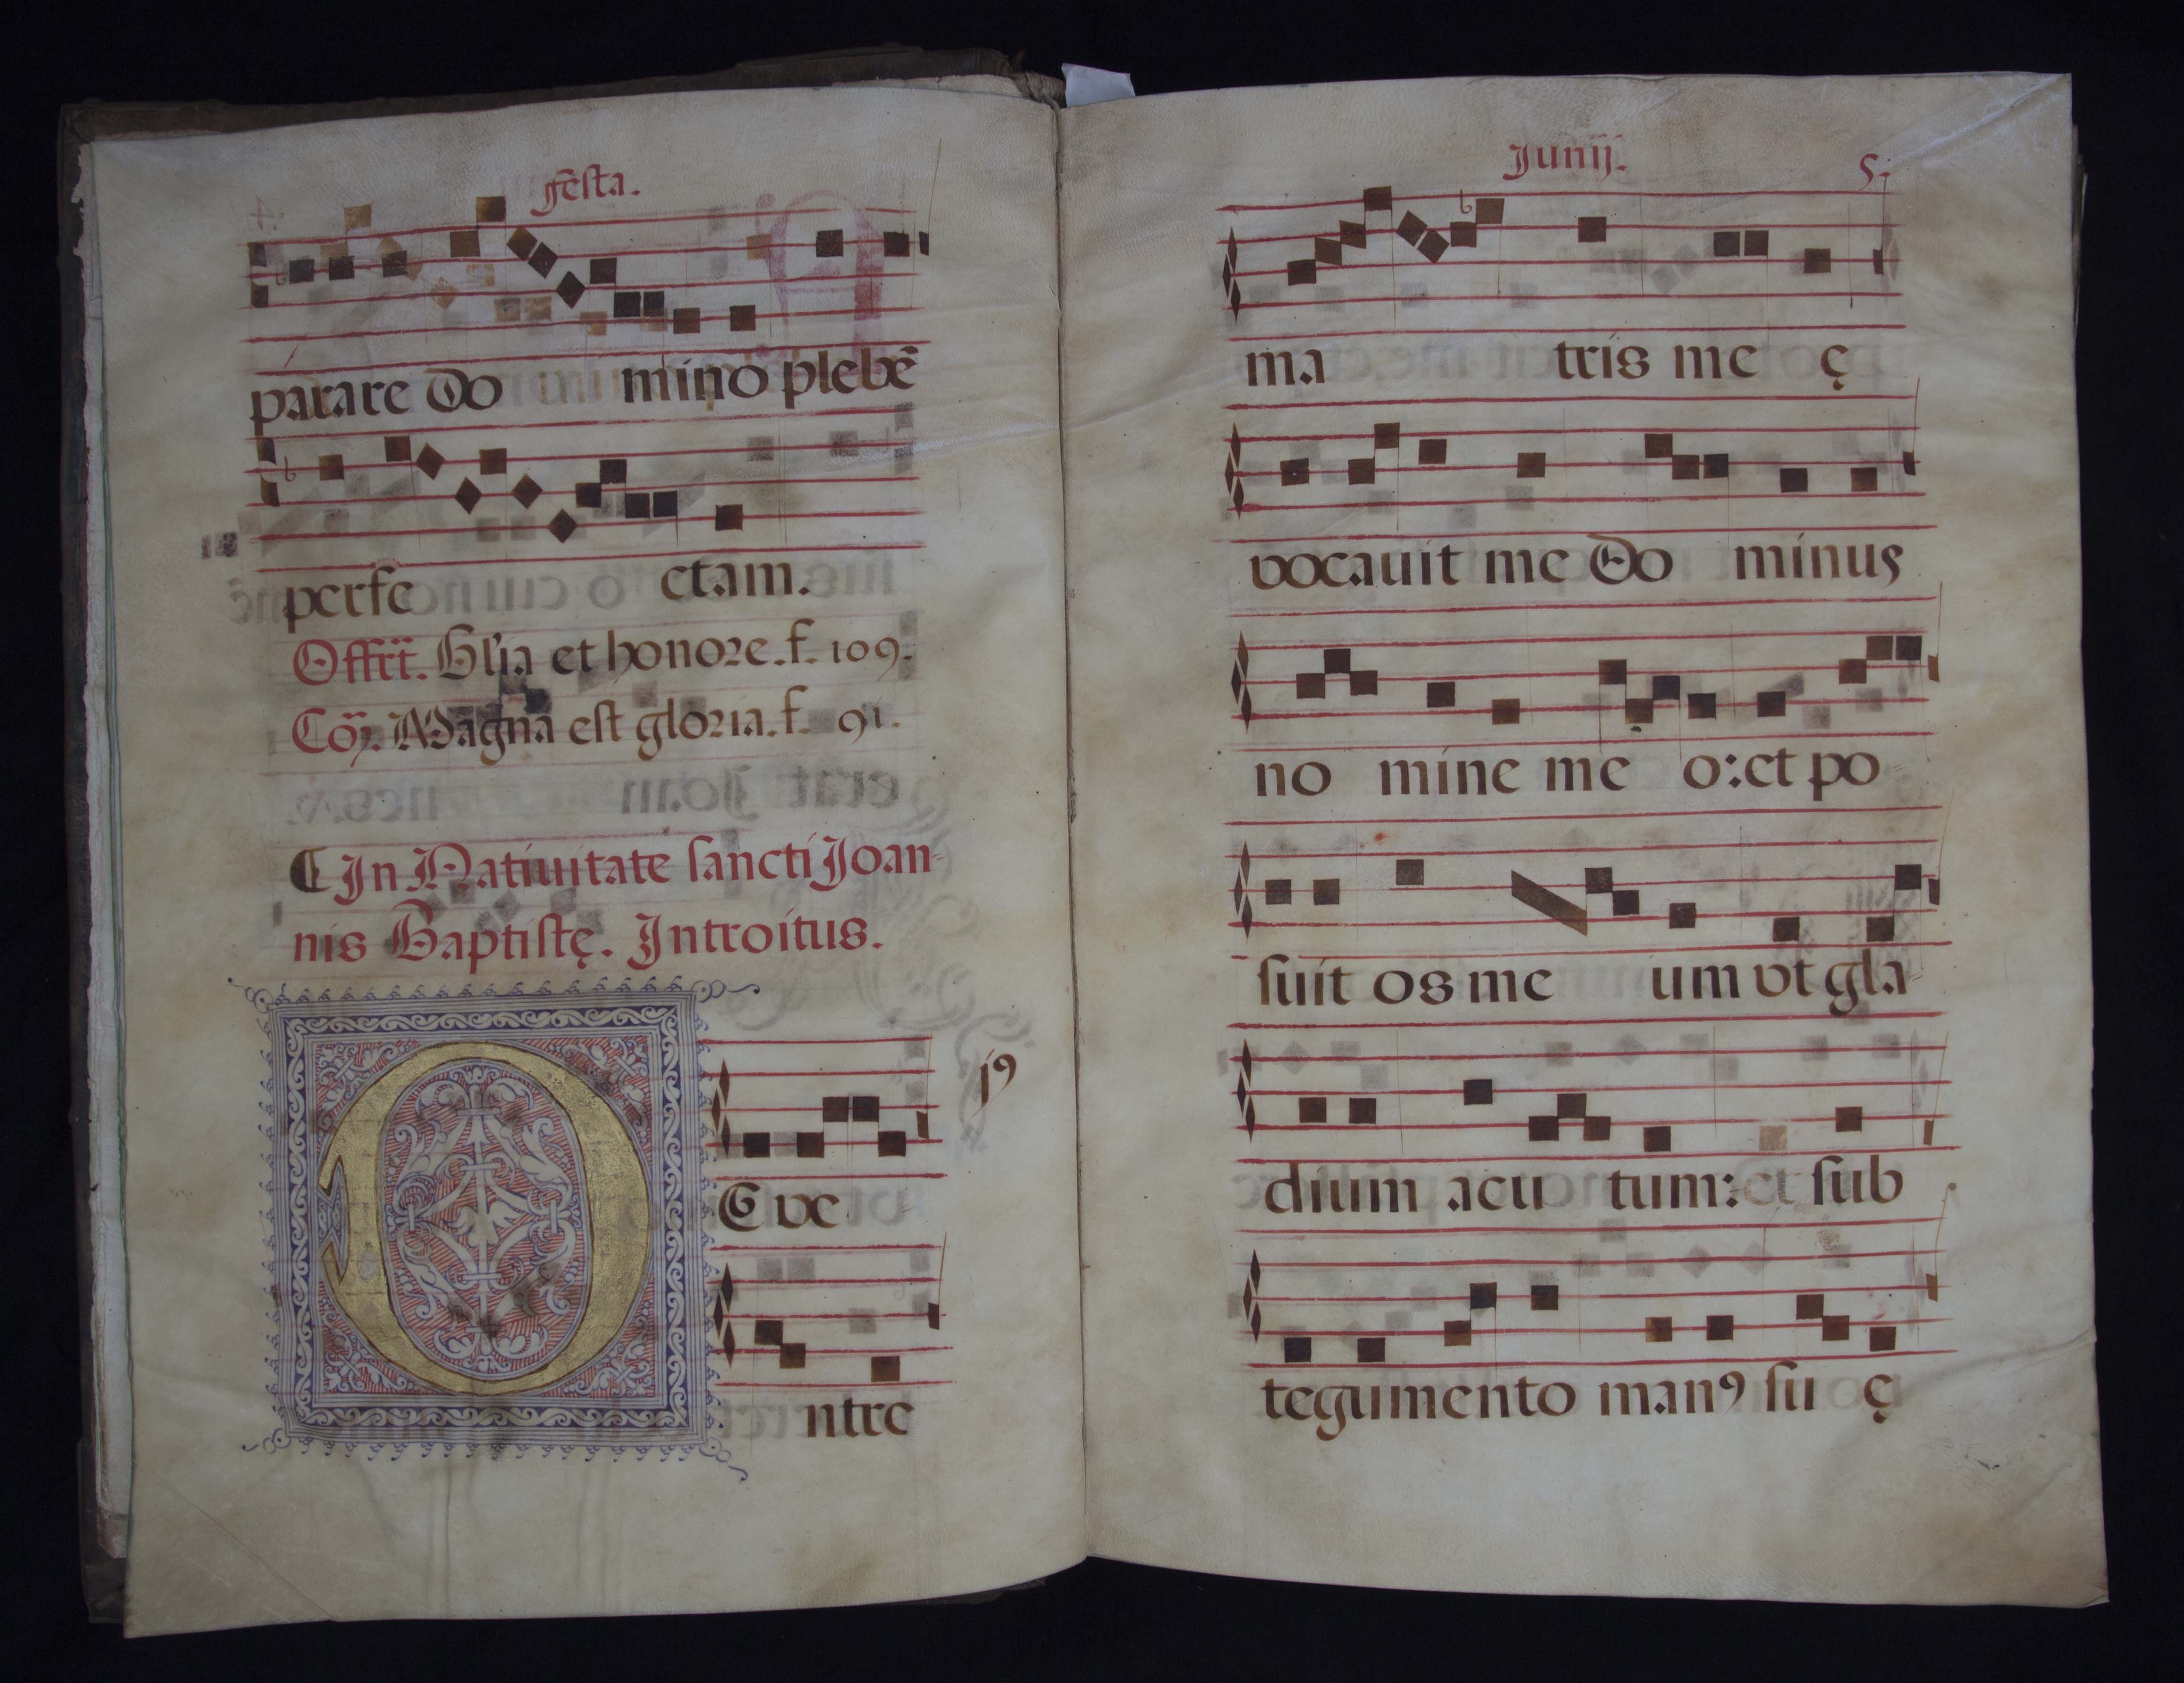 festa.
parare do mino plebē
perfe ctam.
Offrt. Glia et honore. f. 109.
Coȝ. Magna est gloria. f. 91.
¶ In Natiuitate sancti Joan-
nis Baptistę. Introitus.
D E ve
ntre
Junij. 5.
ma tris me ę
vocauit me do minus
no mine me o: et po
suit os me um vt gla-
dium acu tum: et sub
tegumento manꝯ su ę